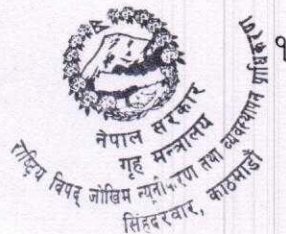 १
नेपाल सरकार
गृह मन्त्रालय
राष्ट्रिय विपद् जोखिम न्यूनीकरण तथा व्यवस्थापन प्राधिकरण
सिंहदरवार, काठमाडौं